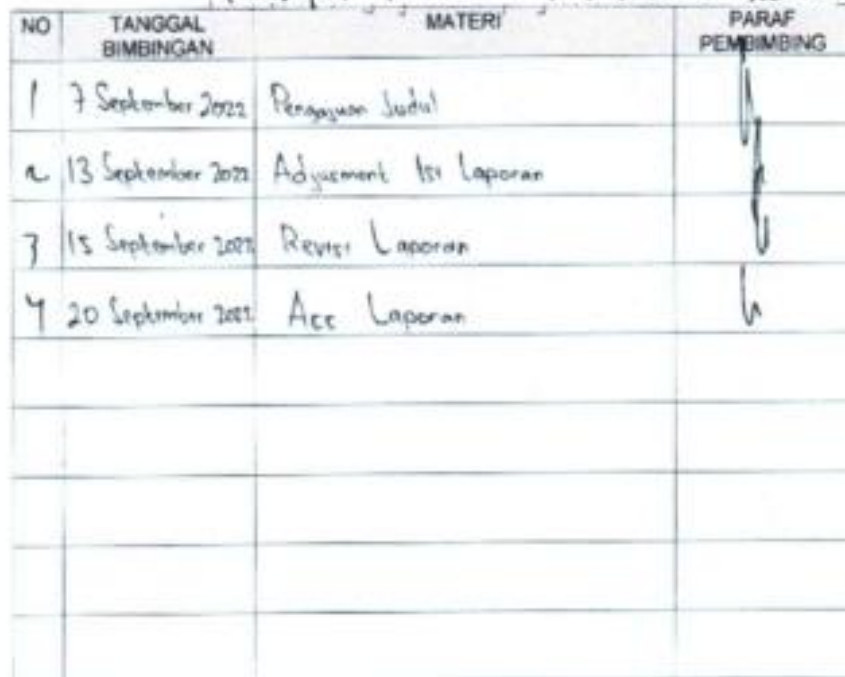 NO TANGGAL BIMBINGAN MATERI PARAF PEMBIMBING
1 7 September 2022 Pengajuan Judul
2 13 September 2022 Adjusment Isi Laporan
3 15 September 2022 Revisi Laporan
4 20 September 2022 Acc Laporan